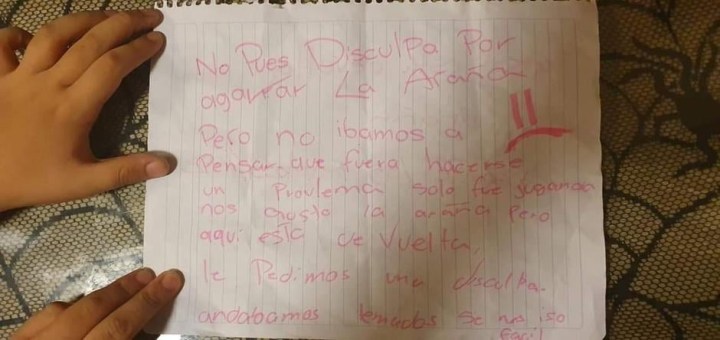 No Pues Disculpa Por
agarrar La Araña
Pero no ibamos a
Pensar que fuera hacerse
un Proulema solo fue jugando
nos gusto la araña Pero
aqui esta de Vuelta,
le Pedimos una disculpa.
andabamos tomados se nos iso
facil